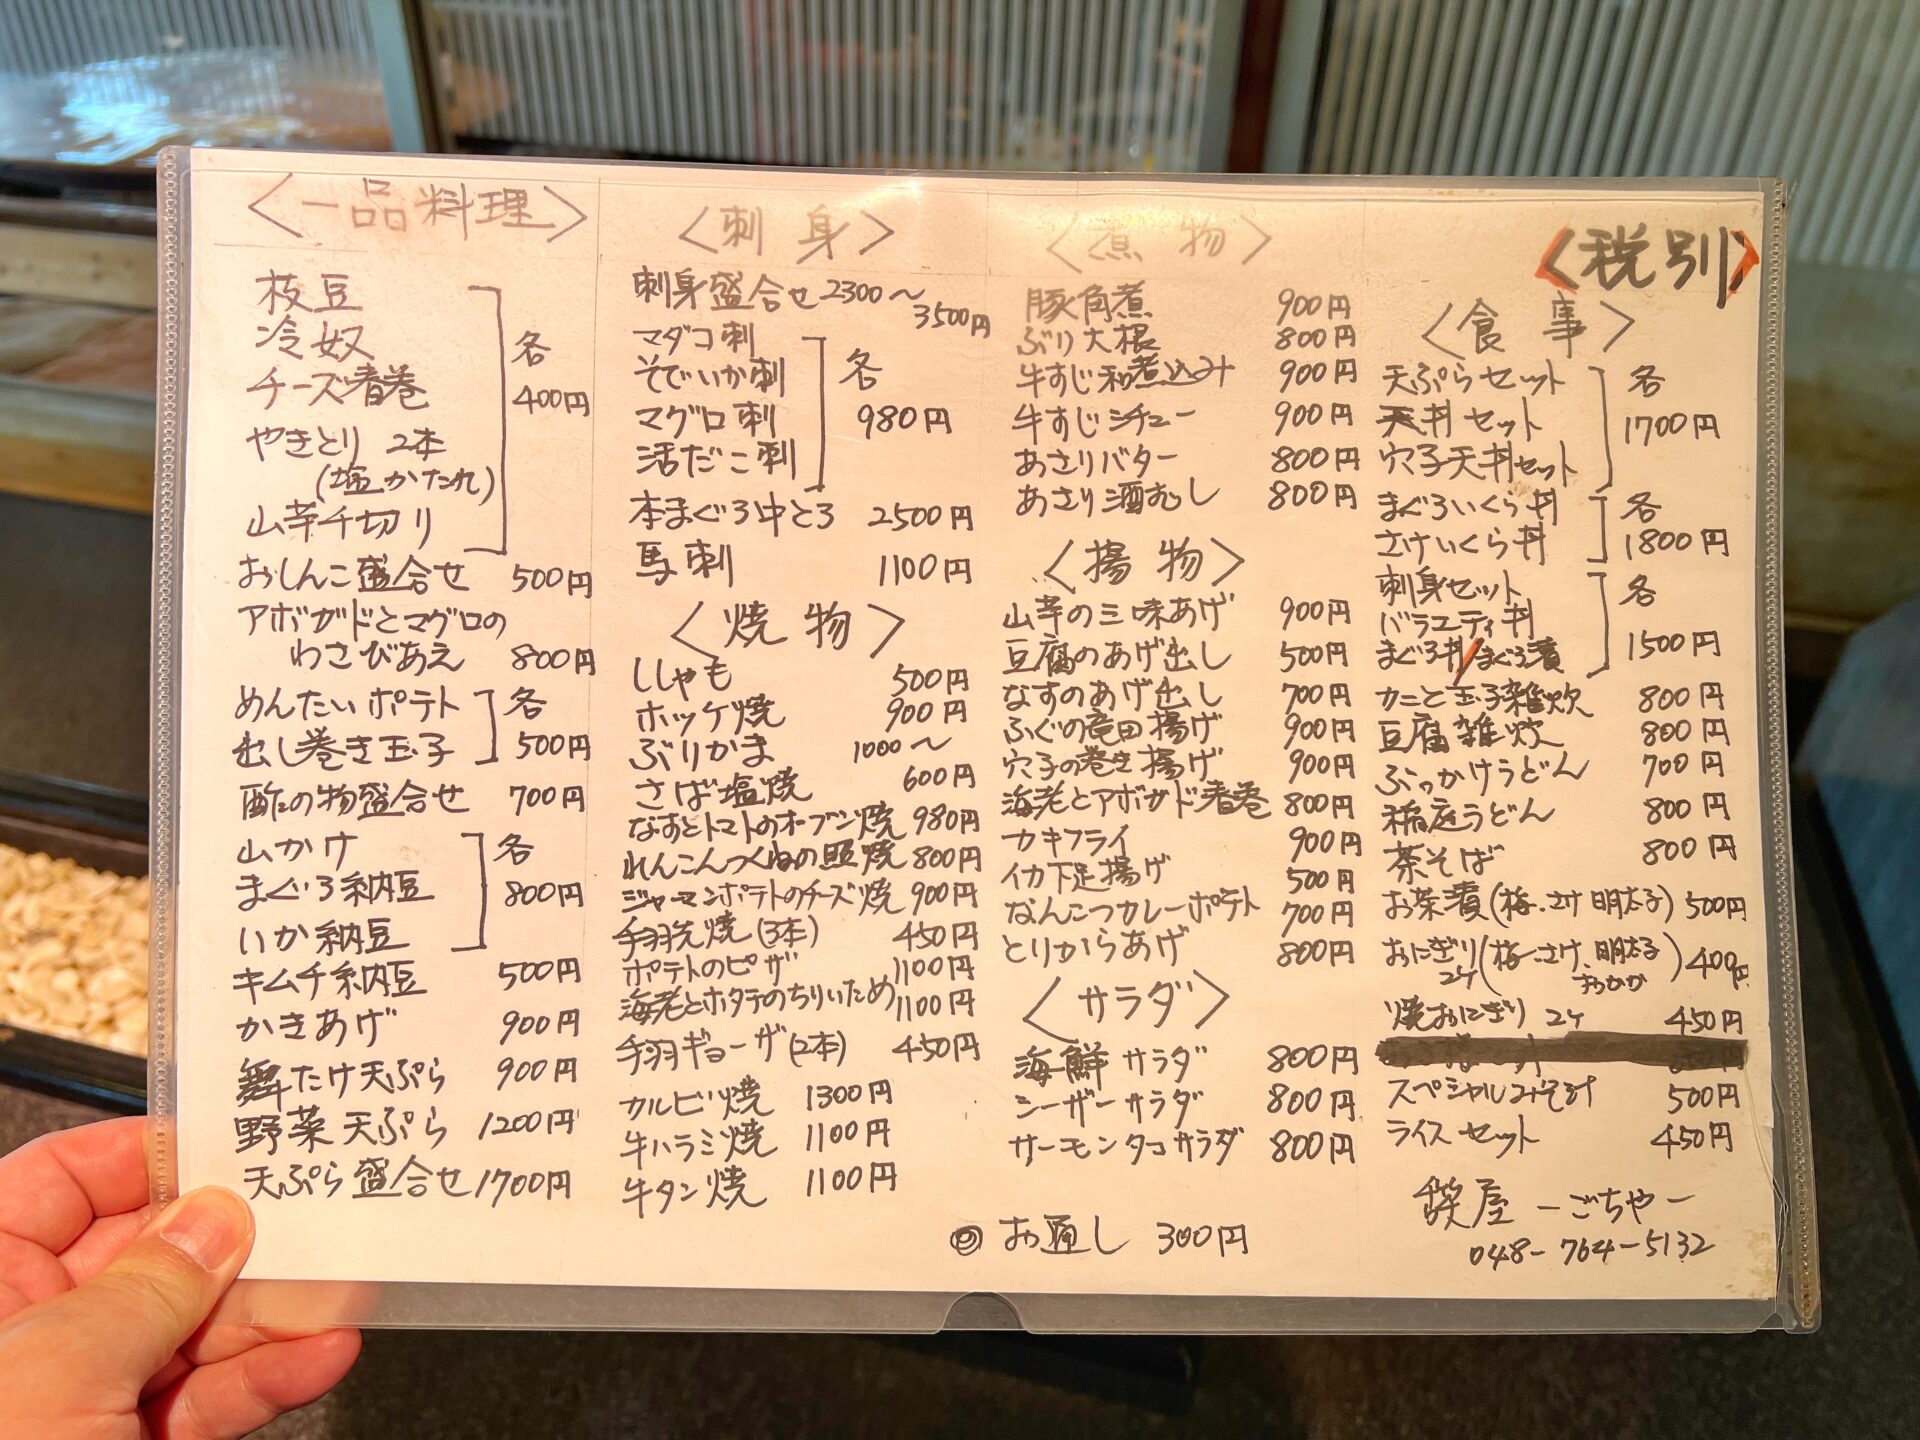 〈一品料理〉
枝豆
冷奴
チーズ春巻
やきとり 2本
(塩かたれ)
山芋千切り
各
400円
おしんこ盛合せ 500円
アボガドとマグロの
わさびあえ 800円
めんたいポテト
出し巻き玉子
各
500円
酢の物盛合せ 700円
山かけ
まぐろ納豆
いか納豆
各
800円
キムチ納豆 500円
かきあげ 900円
舞たけ天ぷら 900円
野菜天ぷら 1200円
天ぷら盛合せ 1700円
〈刺身〉
刺身盛合せ 2300〜
3500円
マダコ刺
そでいか刺
マグロ刺
活だこ刺
各
980円
本まぐろ中とろ 2500円
馬刺 1100円
〈焼物〉
ししゃも 500円
ホッケ焼 900円
ぶりかま 1000〜
さば塩焼 600円
なすとトマトのオーブン焼 980円
れんこんつくねの照焼 800円
ジャーマンポテトのチーズ焼 900円
手羽先焼(3本) 450円
ポテトのピザ 1100円
海老とホタテのちりいため 1100円
手羽ギョーザ(2本) 450円
カルビ焼 1300円
牛ハラミ焼 1100円
牛タン焼 1100円
〈煮物〉
豚角煮 900円
ぶり大根 800円
牛すじ和煮込み 900円
牛すじシチュー 900円
あさりバター 800円
あさり酒むし 800円
〈揚物〉
山芋の三味あげ 900円
豆腐のあげ出し 500円
なすのあげ出し 700円
ふぐの竜田揚げ 900円
穴子の巻き揚げ 900円
海老とアボガド春巻 800円
カキフライ 900円
イカ下足揚げ 500円
なんこつカレーポテト 700円
とりからあげ 800円
〈サラダ〉
海鮮サラダ 800円
シーザーサラダ 800円
サーモンタコサラダ 800円
◎お通し 300円
〈税別〉
〈食事〉
天ぷらセット
天丼セット
穴子天丼セット
各
1700円
まぐろいくら丼
さけいくら丼
各
1800円
刺身セット
バラエティ丼
まぐろ丼/まぐろ漬
各
1500円
カニと玉子雑炊 800円
豆腐雑炊 800円
ぶっかけうどん 700円
稲庭うどん 800円
茶そば 800円
お茶漬(梅・さけ 明太子) 500円
おにぎり(梅・さけ、明太子
2ケ おかか) 400円
焼おにぎり 2ケ 450円
スペシャルみそ汁 500円
ライスセット 450円
屋 ーごちやー
048-764-5132